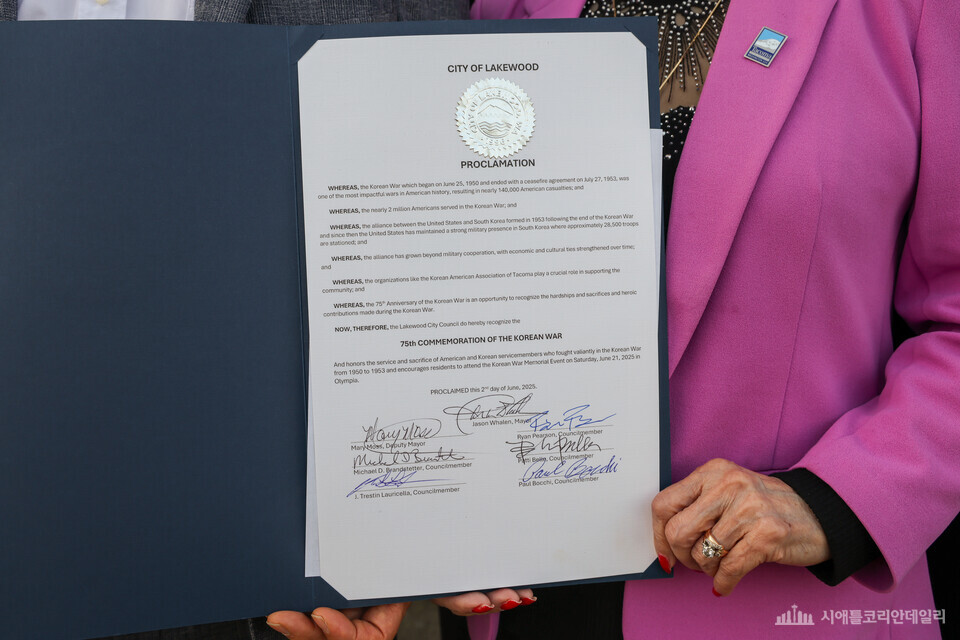 CITY OF LAKEWOOD
PROCLAMATION
WHEREAS, the Korean War which began on June 25, 1950 and ended with a ceasefire agreement on July 27, 1953, was
one of the most impactful wars in American history, resulting in nearly 140,000 American casualties; and
WHEREAS, the nearly 2 million Americans served in the Korean War; and
WHEREAS, the alliance between the United States and South Korea formed in 1953 following the end of the Korean War
and since then the United States has maintained a strong military presence in South Korea where approximately 28,500 troops
are stationed; and
WHEREAS, the alliance has grown beyond military cooperation, with economic and cultural ties strengthened over time;
and
WHEREAS, the organizations like the Korean American Association of Tacoma play a crucial role in supporting the
community; and
WHEREAS, the 75th Anniversary of the Korean War is an opportunity to recognize the hardships and sacrifices and heroic
contributions made during the Korean War.
NOW, THEREFORE, the Lakewood City Council do hereby recognize the
75th COMMEMORATION OF THE KOREAN WAR
And honors the service and sacrifice of American and Korean servicemembers who fought valiantly in the Korean War
from 1950 to 1953 and encourages residents to attend the Korean War Memorial Event on Saturday, June 21, 2025 in
Olympia.
PROCLAIMED this 2nd day of June, 2025.
Jason Whalen, Mayor
Mary Moss, Deputy Mayor
Ryan Pearson, Councilmember
Michael D. Brandstetter, Councilmember
Patti Belle, Councilmember
J. Trestin Lauricella, Councilmember
Paul Bocchi, Councilmember
시애틀코리안데일리